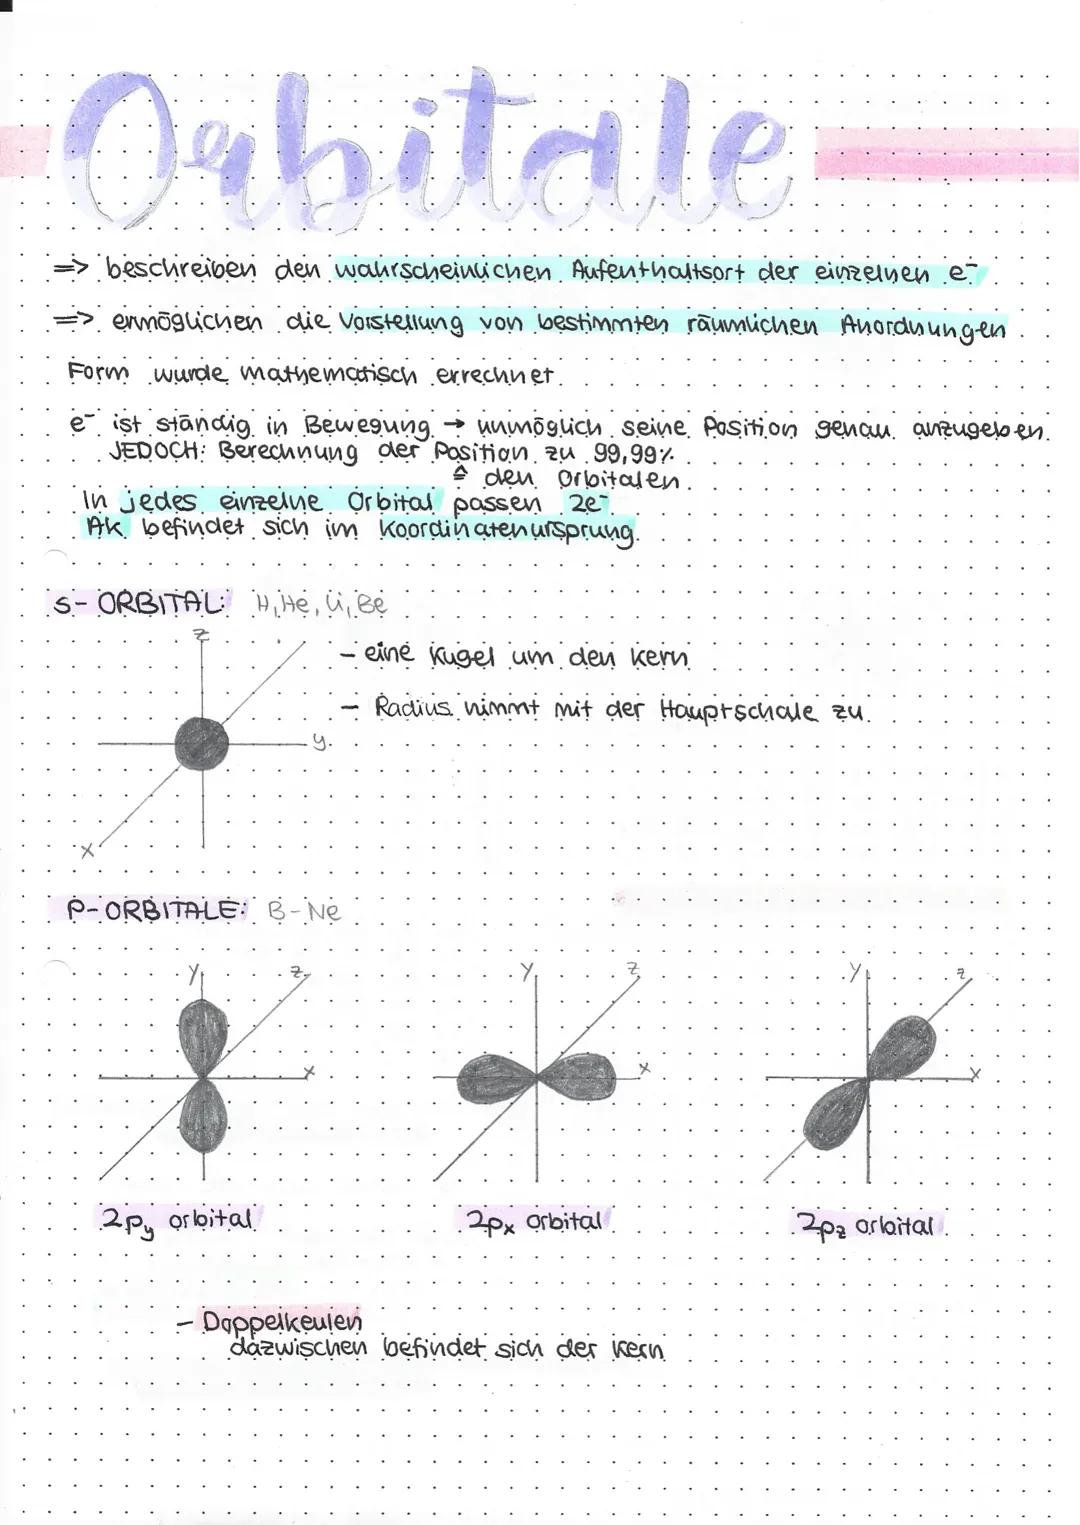 Orbitale
=> beschreiben den wahrscheinlichen Aufenthaltsort der einzelnen e⁻
=> ermöglichen die Vorstellung von bestimmten räumlichen Anordnungen
Form wurde mathematisch errechnet
e⁻ ist ständig in Bewegung → unmöglich seine Position genau anzugeben.
JEDOCH: Berechnung der Position zu 99,99%
≙ den Orbitalen
In jedes einzelne Orbital passen 2e⁻
AK befindet sich im Koordinatenursprung
s-ORBITAL: H, He, Li, Be
z
- eine Kugel um den Kern
- Radius nimmt mit der Hauptschale zu
y
x
P-ORBITALE: B-Ne
y z y z y z
x x x
2py orbital 2px orbital 2pz orbital
- Doppelkeulen
dazwischen befindet sich der Kern